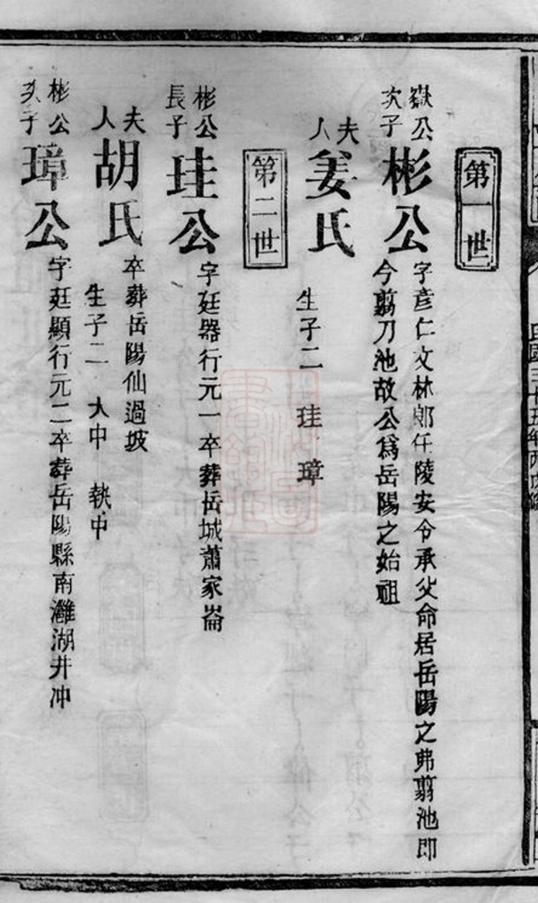 第一世
嶽公次子
彬公
字彥仁文林郎任陵安令承父命居岳陽之弗翦池即
今翦刀池故公爲岳陽之始祖
夫人
姜氏
生子二 珪 璋
第二世
彬公長子
珪公
字廷器行元一卒葬岳城蕭家崙
夫人
胡氏
卒葬岳陽仙過坡
生子二 大中 執中
彬公次子
璋公
字廷顯行元二卒葬岳陽縣南灉湖井冲